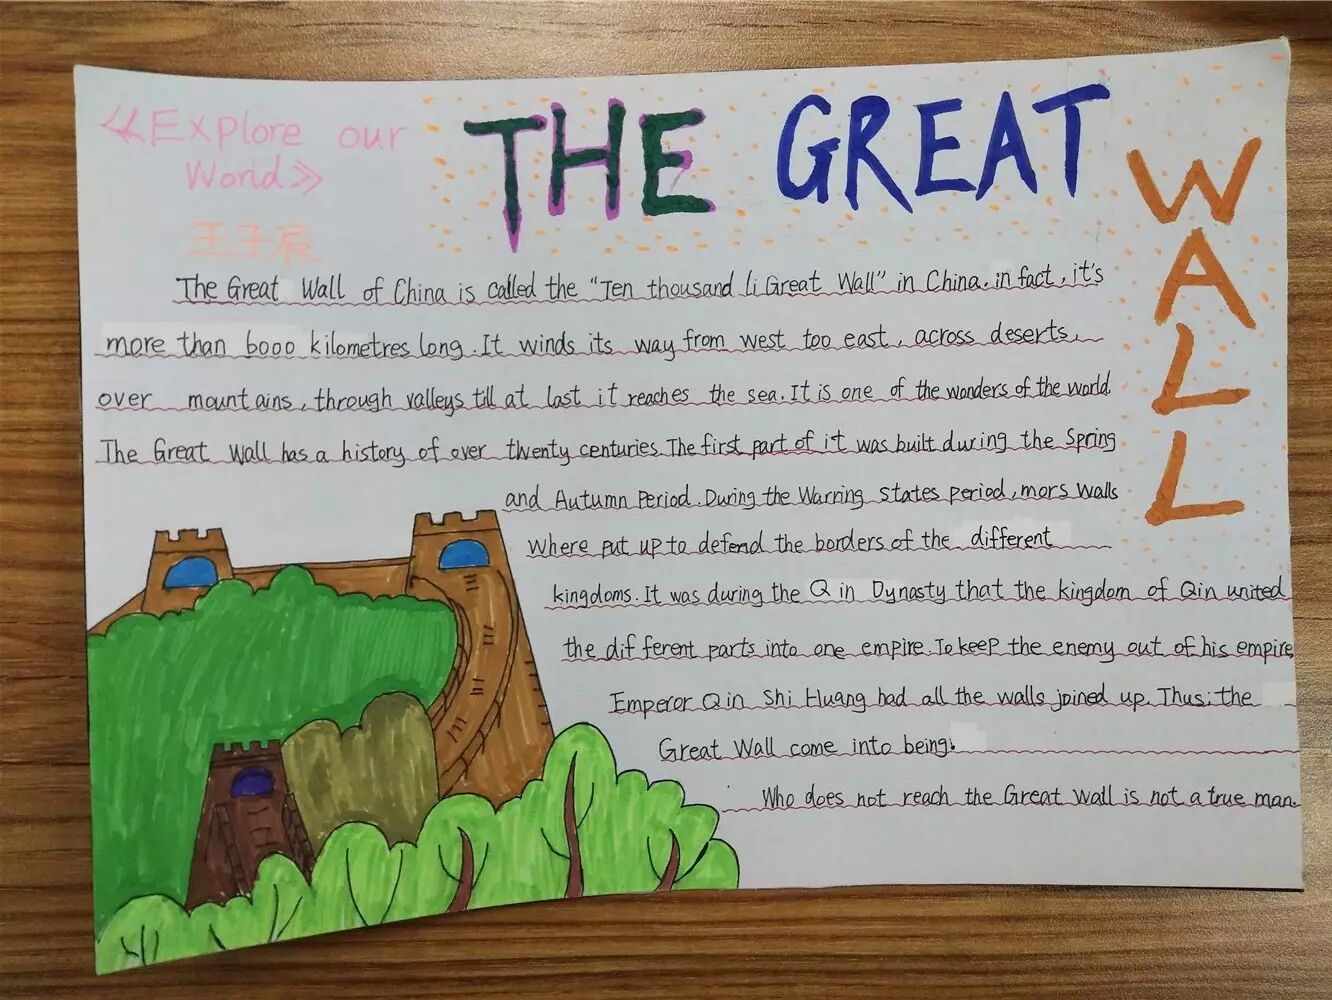 《Explore our
World》
王子宸
THE GREAT
WALL
The Great Wall of China is called the "Ten thousand li Great Wall" in China. in fact, it's
more than 6000 kilometres long. It winds its way from west too east, across deserts,
over mountains, through valleys till at last it reaches the sea. It is one of the wonders of the world.
The Great Wall has a history of over twenty centuries. The first part of it was built during the Spring
and Autumn Period. During the Warring States period, mors walls
where put up to defend the borders of the different
kingdoms. It was during the Qin Dynasty that the kingdom of Qin united
the different parts into one empire. To keep the enemy out of his empire,
Emperor Qin Shi Huang had all the walls joined up. Thus; the
Great Wall come into being.
Who does not reach the Great Wall is not a true man.